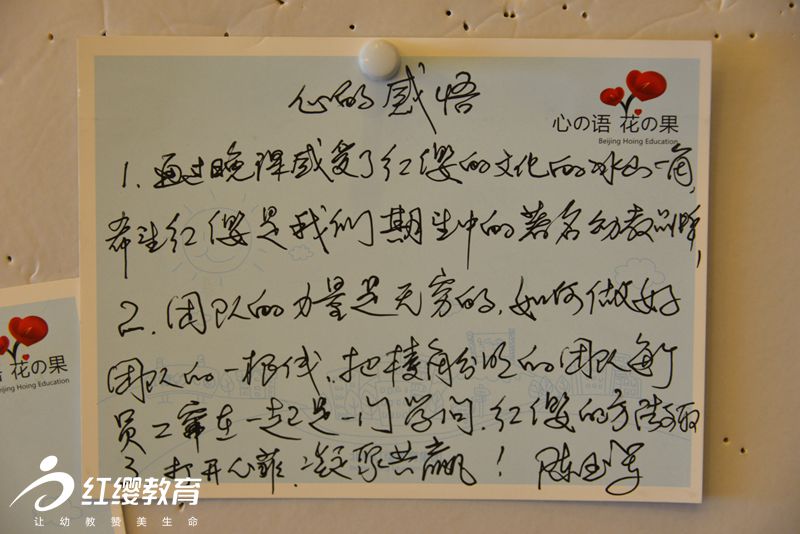 心的感悟
心の语 花の果
Beijing Hoing Education
1. 通过晚课感受了红缨的文化的冰山一角,
希望红缨是我们期望中的著名幼教品牌,
2. 团队的力量是无穷的, 如何做好
团队的一根线, 把棱角分明的团队每个
员工牵在一起是一门学问, 红缨的方法
3. 打开心扉, 凝聚共赢!
语 花の果
Beijing Hoing Education
红缨教育
让幼教赞美生命